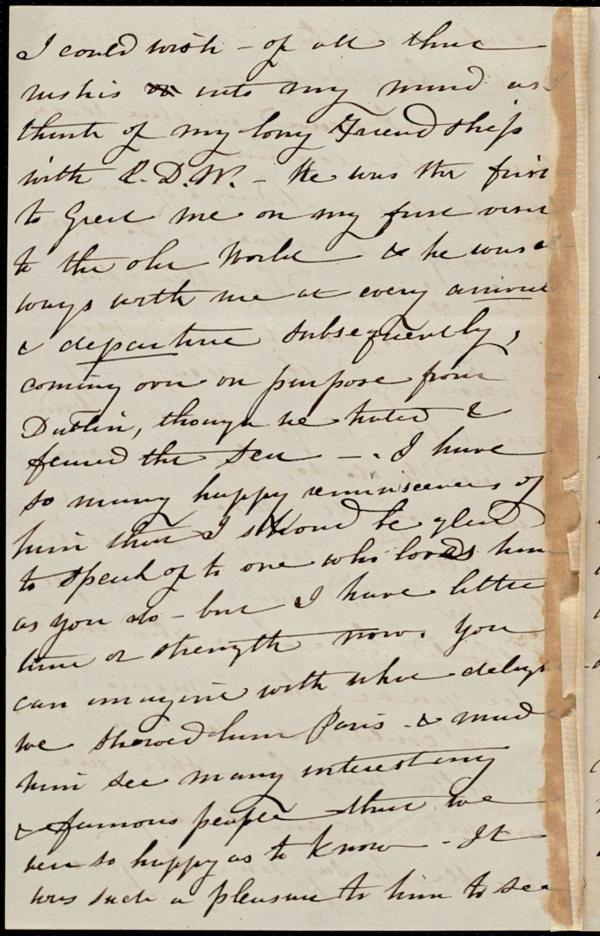 I could wish - of all that
rushes into my mind as I
think of my long Friendship
with R.D.W. - He was the first
to Greet me on my first visit
to the old World & he was al
ways with me at every arrival
& departure subsequently,
coming over on purpose from
Dublin, though he hated &
feared the sea - . I have
so many happy reminiscences of
him that I should be glad
to speak of to one who loves him
as you do - but I have little
time or strength now. You
can imagine with what delight
we showed him Paris - & made
him see many interesting
& famous people that we
were so happy as to know - It
was such a pleasure to him to see